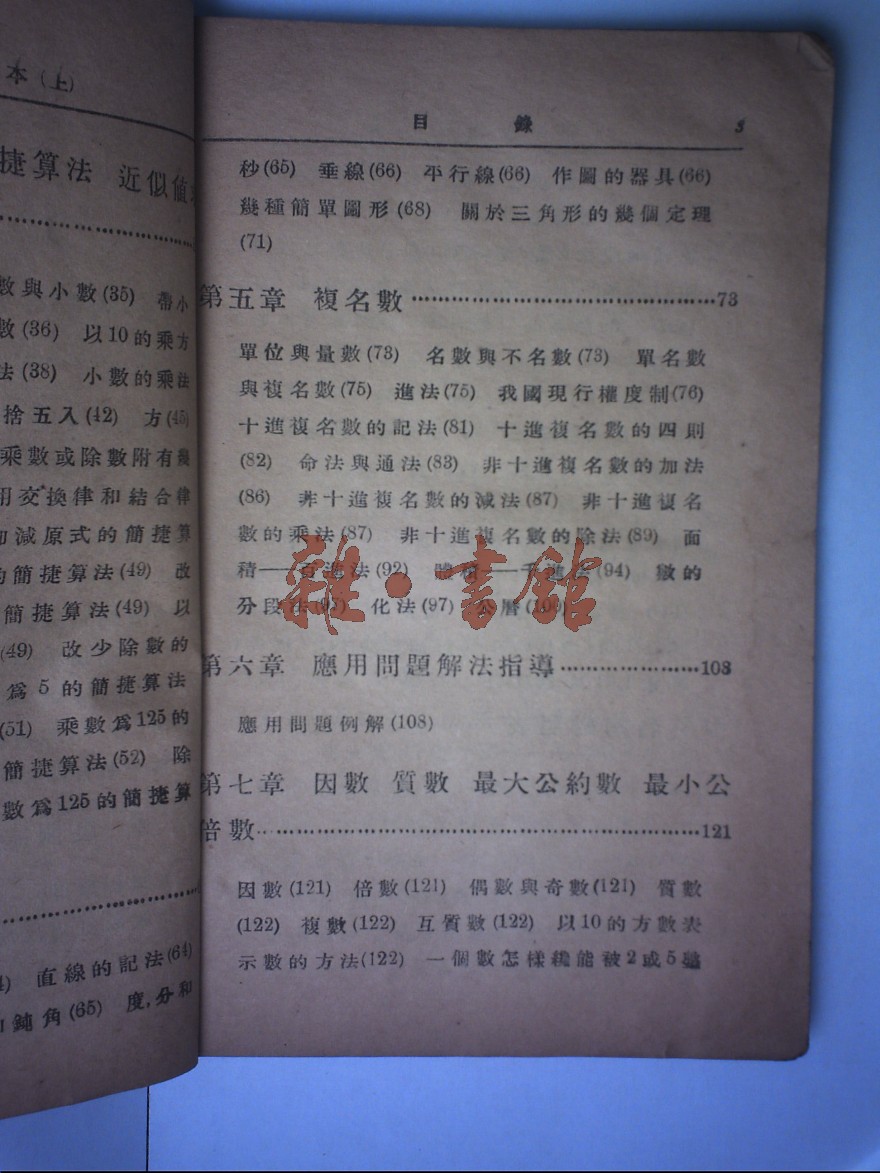 本(上)
捷算法 近似值
數與小數(35) 帶小
數(36) 以10的乘方
法(38) 小數的乘法
捨五入(42) 方(45)
乘數或除數附有幾
用交換律和結合律
加減原式的簡捷算
的簡捷算法(49) 改
簡捷算法(49) 以
(49) 改少除數的
爲5的簡捷算法
(51) 乘數爲125的
簡捷算法(52) 除
數爲125的簡捷算
直線的記法(64)
鈍角(65) 度,分和
目錄 3
秒(65) 垂線(66) 平行線(66) 作圖的器具(66)
幾種簡單圖形(68) 關於三角形的幾個定理
(71)
第五章 複名數………………………………………73
單位與量數(73) 名數與不名數(73) 單名數
與複名數(75) 進法(75) 我國現行權度制(76)
十進複名數的記法(81) 十進複名數的四則
(82) 命法與通法(83) 非十進複名數的加法
(86) 非十進複名數的減法(87) 非十進複名
數的乘法(87) 非十進複名數的除法(89) 面
積——百進法(92) 體積——千進法(94) 數的
分段法(95) 化法(97) 公曆(100)
雜·書館
第六章 應用問題解法指導…………………108
應用問題例解(108)
第七章 因數 質數 最大公約數 最小公
倍數………………………………………………………121
因數(121) 倍數(121) 偶數與奇數(121) 質數
(122) 複數(122) 互質數(122) 以10的方數表
示數的方法(122) 一個數怎樣纔能被2或5整